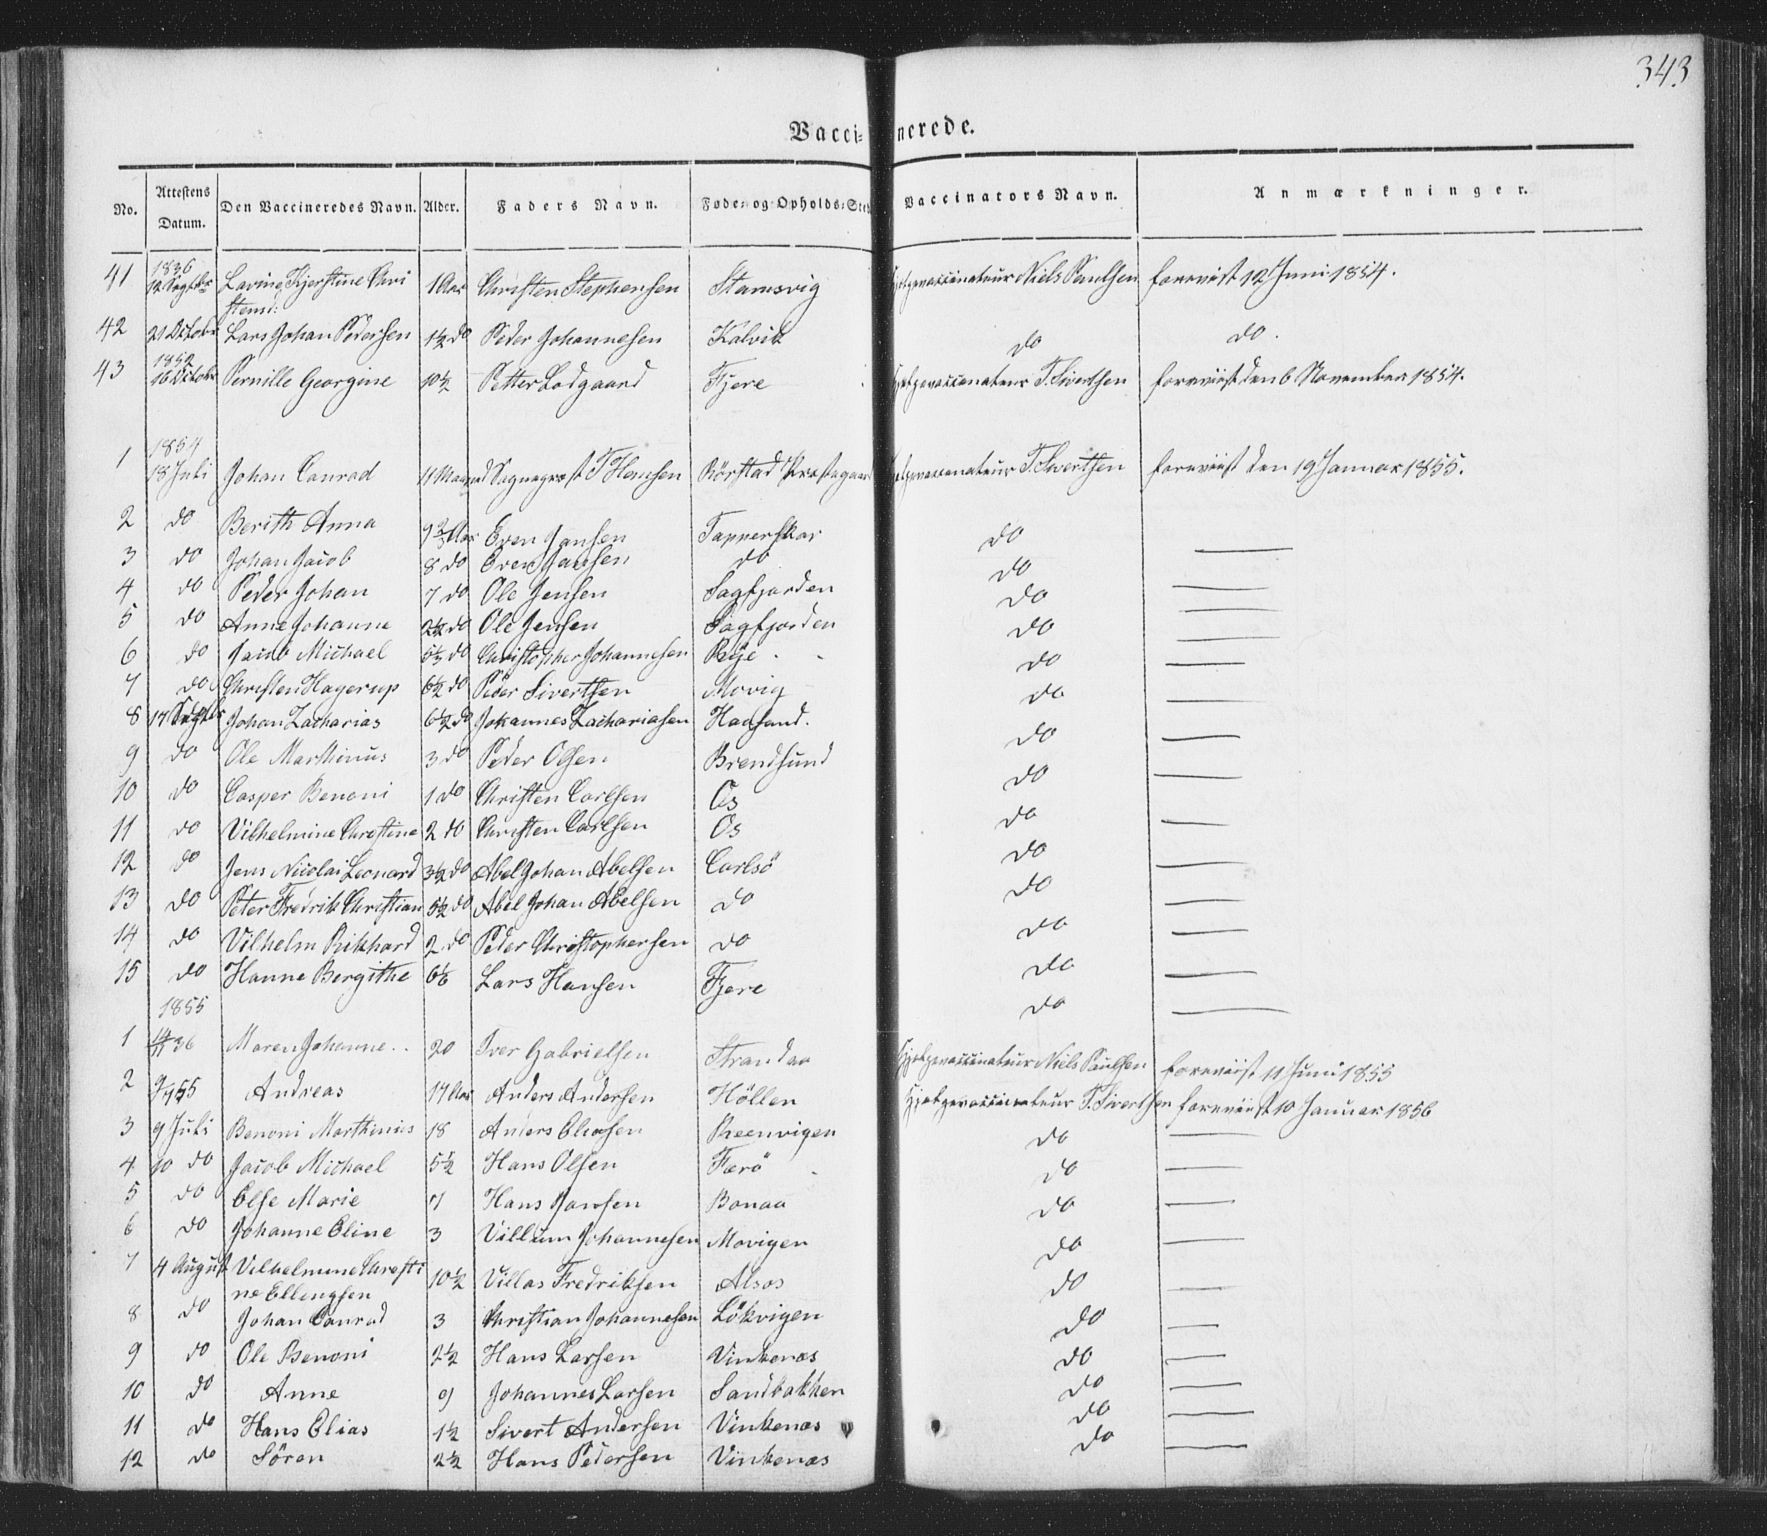 343
Vaccinerede.
No. Attestens Datum. Den Vaccineredes Navn. Alder. Faders Navn. Føde- og Opholds-Sted Vaccinators Navn. Anmærkninger.
1836
41 12 Septbr Lavine Kjerstine Chri 1 Aar Christen Stephensen Stamsvig Hjelpevaccinateur Niels Paulsen foreviist 12 Juni 1854.
stensd:
42 21 Octobr Lars Johan Pedersen 1½ do Peder Johannesen Kalvik do do.
1852
43 16 Octobr Pernille Georgine 10½ Petter Lodgaard Fjere Hjelpevaccinateur T. Sivertsen foreviist den 6 November 1854.
1854
1 18 Juli Johan Conrad 11 Maaned Sogneprest T Hemsen Rörstad Prestegaard Hjelpevaccinateur T. Sivertsen foreviist den 19 Januar 1855.
2 do Berith Anna 9⅔ Aar Even Jansen Tapperskar do —
3 do Johan Jacob 8 do Even Jansen do do —
4 do Peder Johan 7 do Ole Jensen Sagfjorden do —
5 do Anne Johanne 2½ do Ole Jensen Sagfjorden do —
6 do Jacob Michael 5⅓ do Christopher Johannesen Reje do —
7 do Christen Hagerup 6½ do Peder Sivertsen Movig do —
8 17 Septbr Johan Zacharias 6½ do Johannes Zachariasen Haasand. do —
9 do Ole Marthinus 3 do Peder Olsen Brendsund do —
10 do Casper Benoni 1 do Christen Carlsen Os do —
11 do Vilhelmine Christine 2 do Christen Carlsen Os do —
12 do Jens Nicolai Leonard 3½ do Abel Johan Abelsen Carlsö do —
13 do Peter Fredrik Christian 5½ do Abel Johan Abelsen do do —
14 do Vilhelm Rikhard 2 do Peder Christophersen do do —
15 do Hanne Bergithe 6⅙ Lars Hansen Fjere do —
1855
1 36 Maren Johanne 20 Iver Gabrielsen Strandaa Hjelpevaccinateur Niels Paulsen foreviist 11 Juni 1855
2 9/7 55 Andreas 17 Aar Anders Andersen Höllen Hjelpevaccinateur T. Sivertsen foreviist 10 Januar 1856
3 9 Juli Benoni Marthinus 18 Anders Eliasen Reenvigen do —
4 10 do Jacob Michael 5½ Hans Olsen Færö do —
5 do Else Marie 7 Hans Jansen Bonaa do —
6 do Johanne Eline 3 Villum Johannesen Movigen do —
7 4 August Vilhelmine Christi 10½ Villas Fredriksen Alsos do —
ne Ellingsen
8 do Johan Conrad 3 Christian Johannesen Lökvigen do —
9 do Ole Benoni 2½ Hans Larsen Vinkenæs do —
10 do Anne 9 Johannes Larsen Sandbakken do —
11 do Hans Elias 1½ Sivert Andersen Vinkenæs do —
12 do Sören 2½ Hans Pedersen Vinkenæs do —